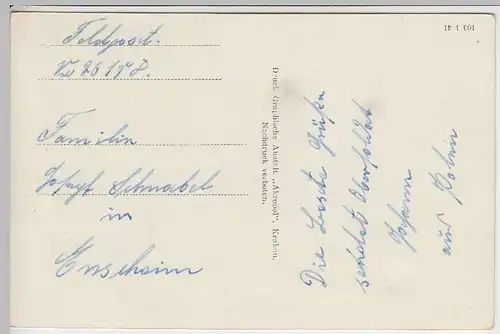 Feldpost.
No 26178.
Familie
Josef Schnabel
in
Ensheim
Druck: Graphische Anstalt „Akropol“, Krakau.
Nachdruck verboten.
103 1 41
Die beste Grüße
sendet Obersoldat
Johann
aus Polen